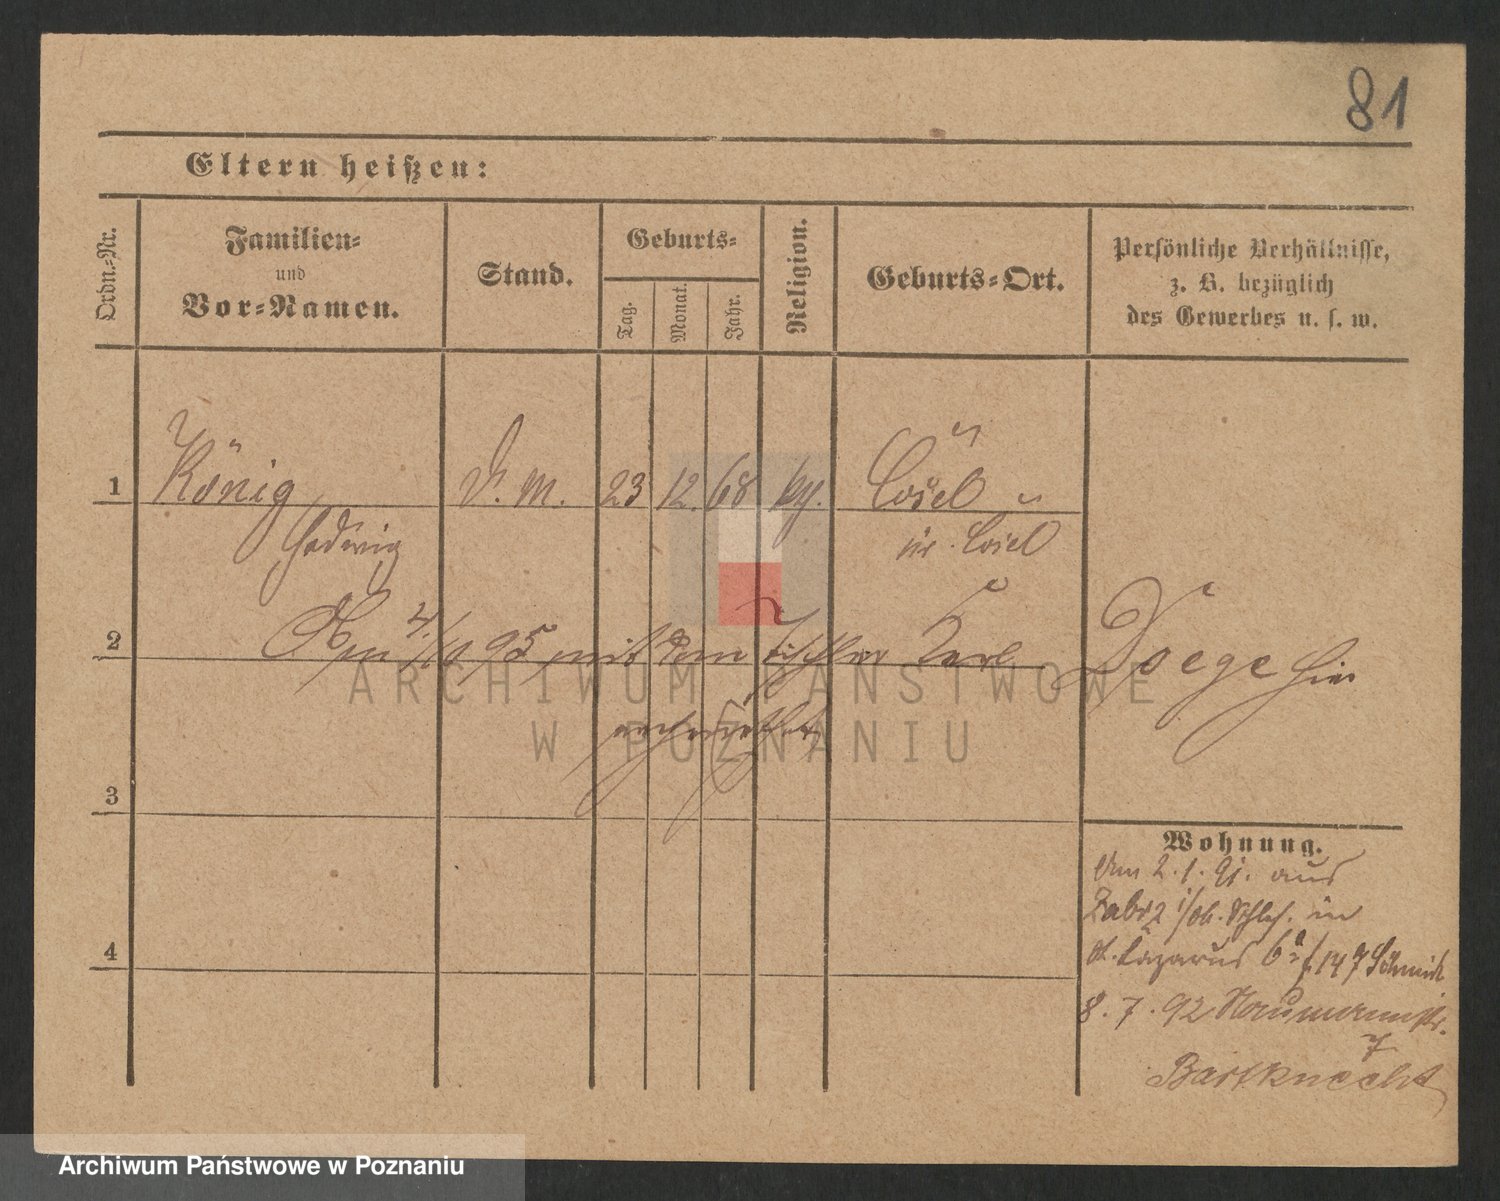 81
Eltern heißen:
Ordn.-Nr.
Familien-
und
Vor-Namen.
Stand.
Geburts-
Tag.
Monat.
Jahr.
Religion.
Geburts-Ort.
Persönliche Verhältnisse,
z. B. bezüglich
des Gewerbes u. s. w.
1 König D. M. 23 12. 68 Cosel
Hedwig Kr. Cosel
2 Am 4./ 95 mit dem Tischler Karl Doege hier
verheirathet
3
Wohnung.
Am 2. 1. 91. aus
Zabrz i/Ob. Schles. in
St. Lazarus 6a f. 147 Schmidt
4
8. 7. 92 Naumannstr.
7
Bartknecht
ARCHIWUM PAŃSTWOWE
W POZNANIU
Archiwum Państwowe w Poznaniu